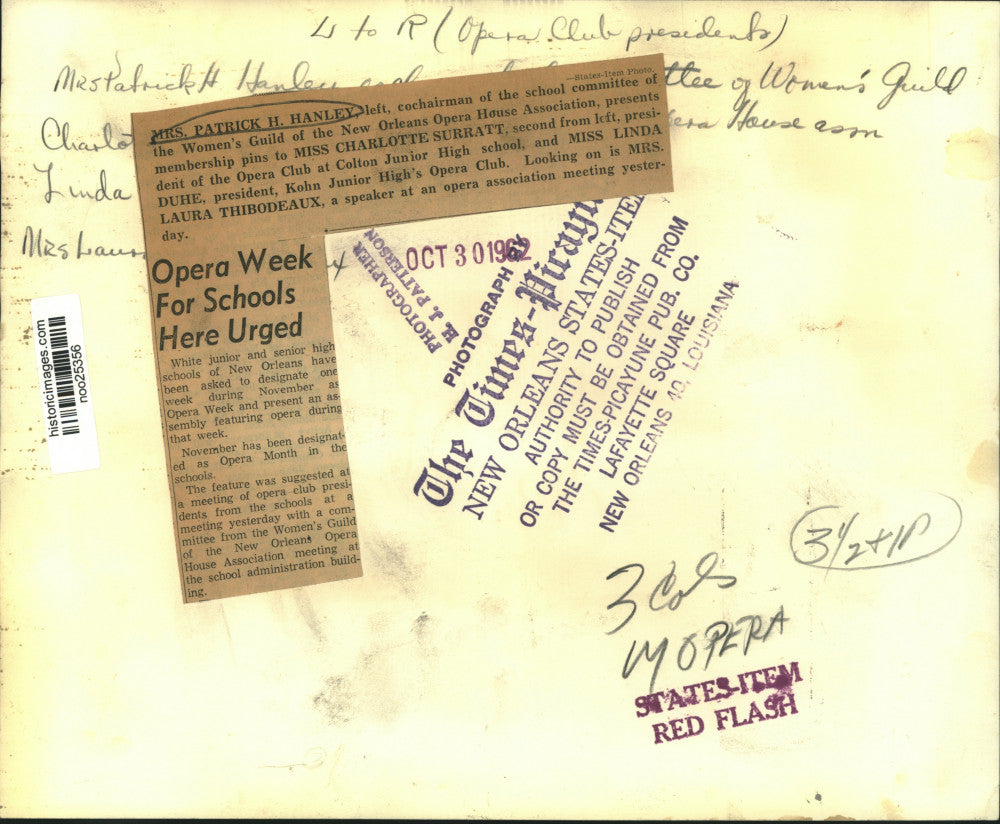 L to R (Opera Club presidents)
Mrs Patrick H Hanley
ttee of Women's Guild
Charlot
era House assn
Linda
Mrs Laur
x
—States-Item Photo.
MRS. PATRICK H. HANLEY, left, cochairman of the school committee of
the Women's Guild of the New Orleans Opera House Association, presents
membership pins to MISS CHARLOTTE SURRATT, second from left, presi-
dent of the Opera Club at Colton Junior High school, and MISS LINDA
DUHE, president, Kohn Junior High's Opera Club. Looking on is MRS.
LAURA THIBODEAUX, a speaker at an opera association meeting yester-
day.
Opera Week
For Schools
Here Urged
White junior and senior high
schools of New Orleans have
been asked to designate one
week during November as
Opera Week and present an as-
sembly featuring opera during
that week.
November has been designat-
ed as Opera Month in the
schools.
The feature was suggested at
a meeting of opera club presi-
dents from the schools at a
meeting yesterday with a com-
mittee from the Women's Guild
of the New Orleans Opera
House Association meeting at
the school administration build-
ing.
historicimages.com
noo25356
PHOTOGRAPHER
H. J. PATTERSON
OCT 30 1962
PHOTOGRAPH BY
The Times-Picayun
NEW ORLEANS STATES-ITE
AUTHORITY TO PUBLISH
OR COPY MUST BE OBTAINED FROM
THE TIMES-PICAYUNE PUB. CO.
LAFAYETTE SQUARE
NEW ORLEANS 40, LOUISIANA
3 1/2 + 1P
3 Cols
OPERA
STATES-ITEM
RED FLASH